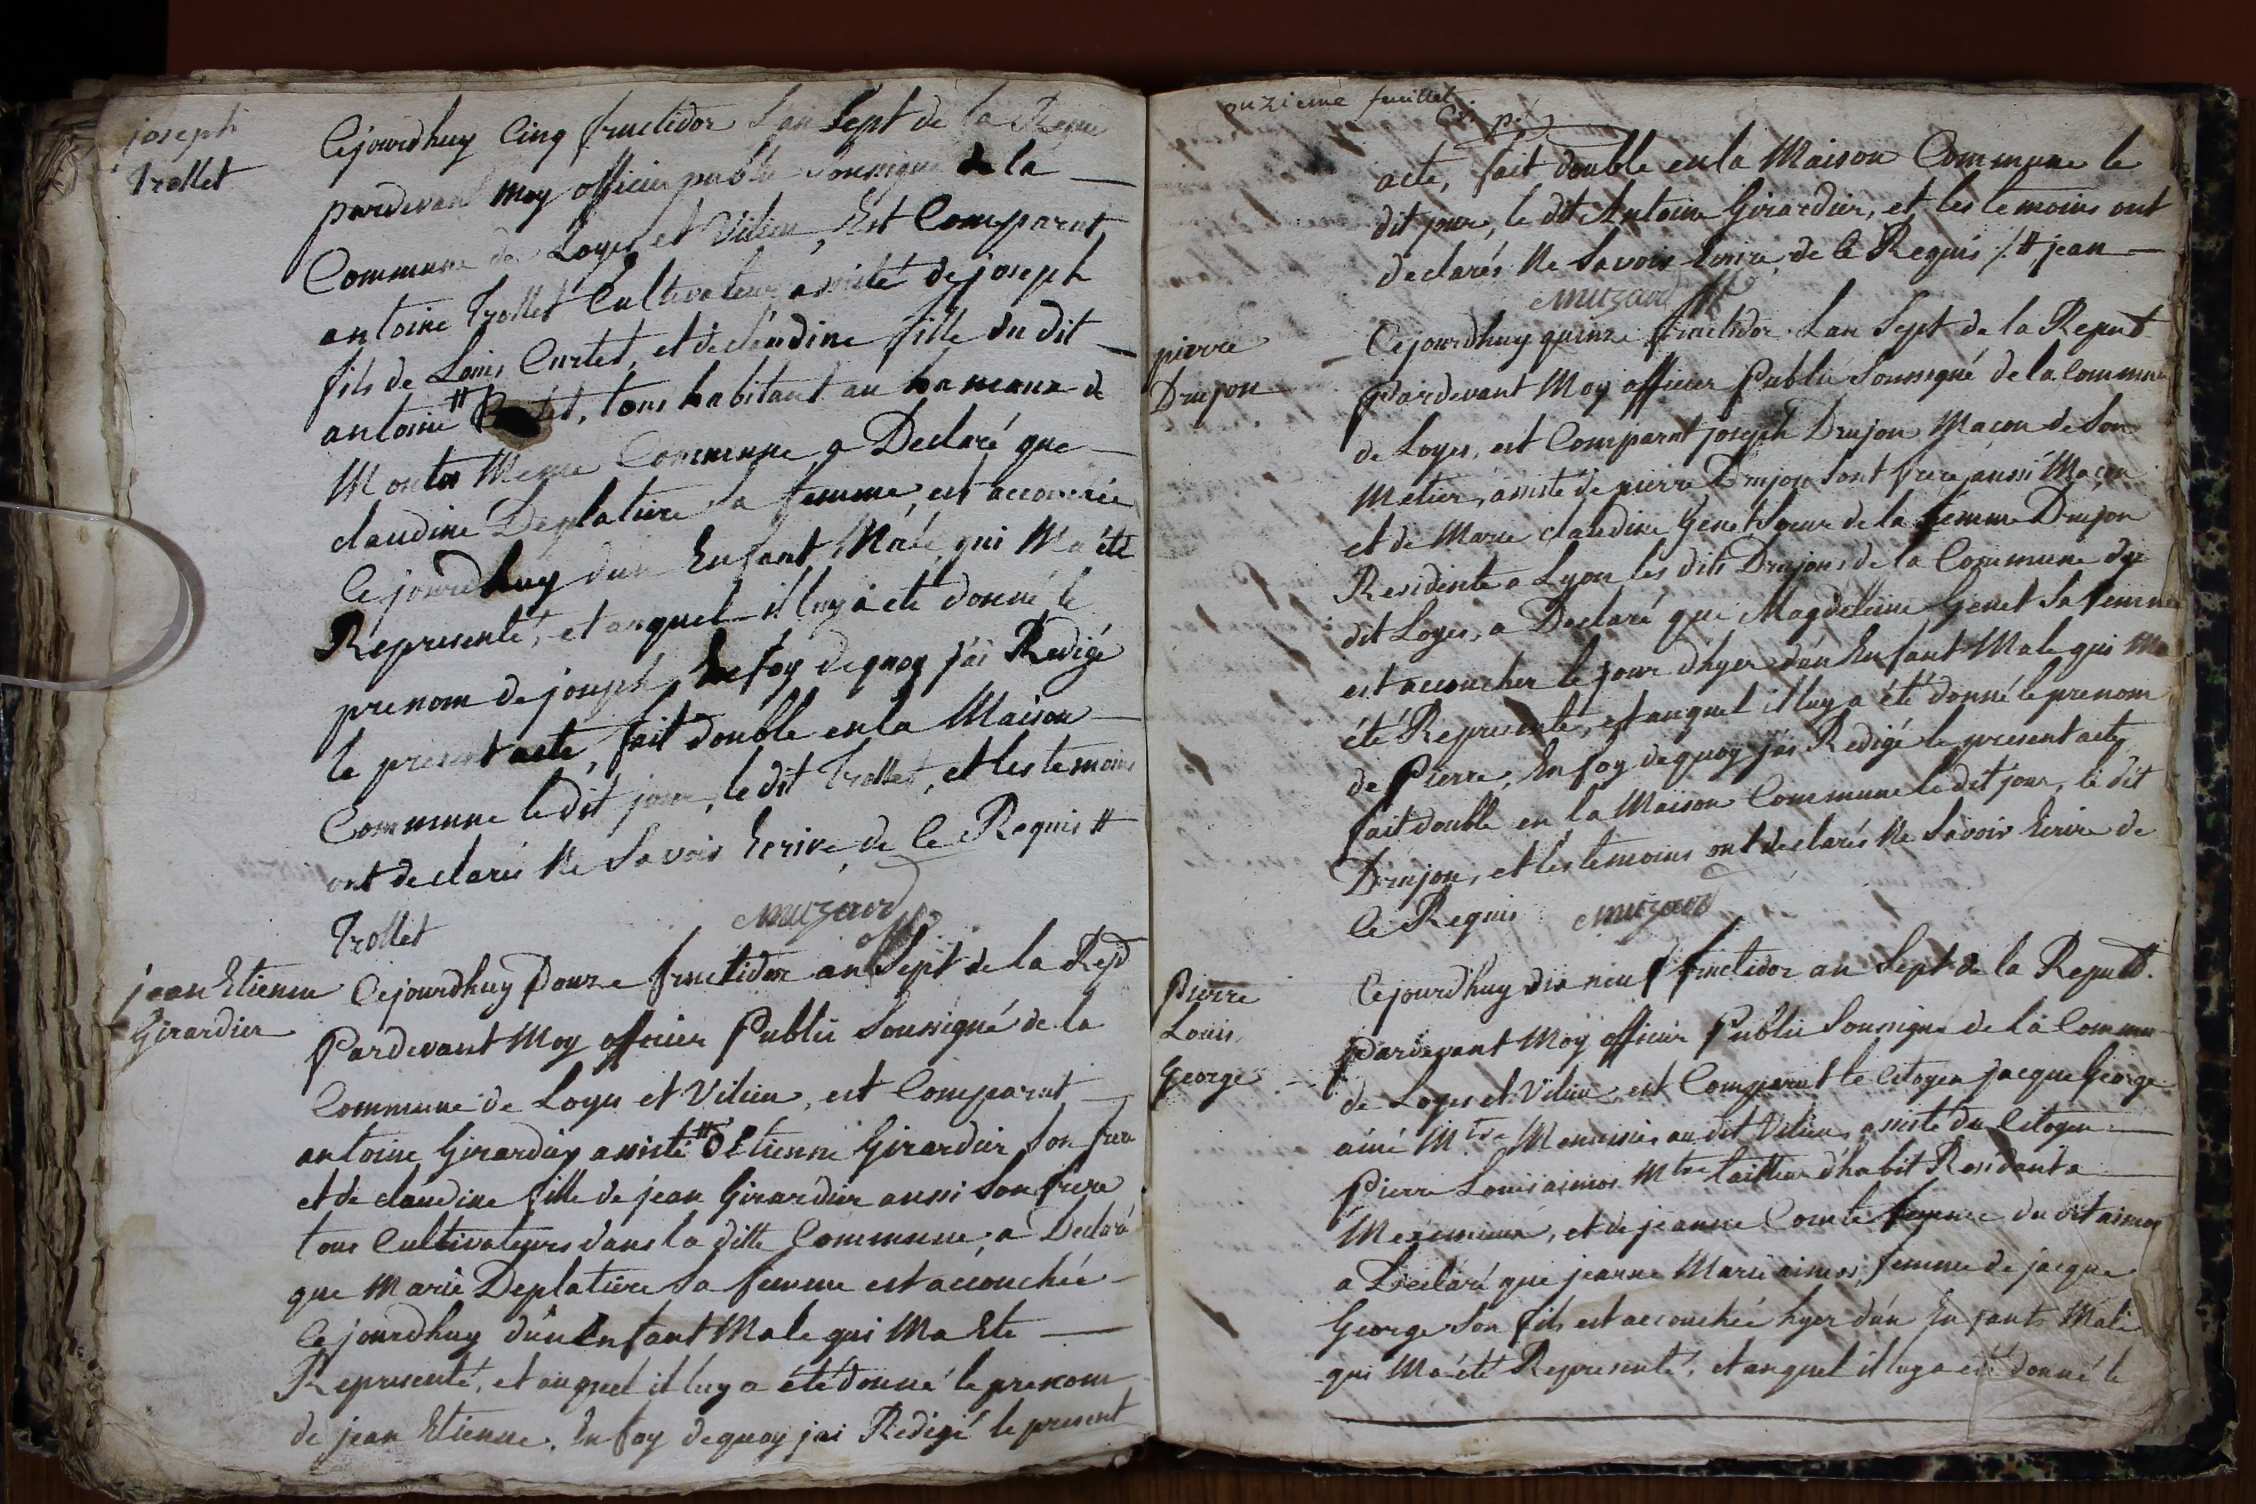 joseph
Trollet
Cejourdhuy Cinq fructidor Lan Sept de la Repu
pardevant moy officier public soussigné de la
Commune de Loyes et Vilieu, Est Comparut
antoine Trollet Cultivateur assisté de joseph
fils de Louis Curtet, et de claudine fille du dit
antoine # tous habitant au hameaux de
Mollon Meme Commune a Declaré que
claudine Deplatiere sa femme, est accouchée
Cejourdhuy dun Enfant Male, qui Ma été
Representé, et auquel il luy à eté donné le
prenom de joseph, En foy dequoy j'ai Redigé
le present acte, fait double en la Maison
Commune le dit jour, le dit Trollet, et les temoins
ont declarés Ne Savoir Ecrire, de Ce Requis #
Trollet
Muzard
jean Etienne
Girardier
Cejourdhuy Douze fructidor an Sept de la Rep
Pardevant Moy officier Public Soussigné de la
Commune de Loyes et Vilieu, est Comparut
antoine Girardier assisté # d'Etienne Girardier Son frere
et de claudine fille de jean Girardier aussi Son frere
tous Cultivateurs dans la ditte Commune, a Declaré
que Marie Deplatiere Sa femme est accouchée
Cejourdhuy d'un Enfant Male qui Ma Ete
Representé, et auquel il luy a été donné le prenom
de jean Etienne. En foy dequoy jai Redigé le present
onzieme feuillet
acte, fait double en la Maison Commune le
dit jour, le dit Antoine Girardier, et les temoins ont
declarés Ne Savoir Ecrire, de Ce Requis /. # jean
Muzard
pierre
Drujon
Cejourdhuy quinze fructidor Lan Sept de la Repu
Pardevant Moy officier Public Soussigné de la Commune
de Loyes, est Comparut joseph Drujon Maçon de Son
Metier, assisté de pierre Drujon Sont frere, aussi Maçon
et de Marie claudine Genet Soeur de la femme Drujon
Residente a Lyon les dits Drujons de la Commune du
dit Loyes, a Declaré que Magdeleine Genet Sa femme
est accoucher le jour d'hyer d'un Enfant Male qui Ma
été Representé, et auquel il luy a été donné le prenom
de Pierre, En foy dequoy jai Redigé le present acte
fait double en la Maison Commune le dit jour, le dit
Drujon, et les temoins ont declarés Ne Savoir Ecrire de
Ce Requis Muzard
Pierre
Louis
George
Cejourd'huy dix neuf fructidor an Sept de la Republ.
Pardevant Moy officier Public Soussigné de la Commu
de Loyes et Vilieu, est Comparut le Citoyen jacque George
ainé Mtre Menuisier au dit Vilieu, assisté du Citoyen
Pierre Louis aimos Mtre tailleur d'habit Residant a
Meximieux, et de jeanne Comte femme du dit aimos
a Declaré que jeanne Marie aimos, femme de jacque
George Son fils est accouchée hyer d'un Enfants Male
qui Ma été Representé, et auquel il luy a été donné le